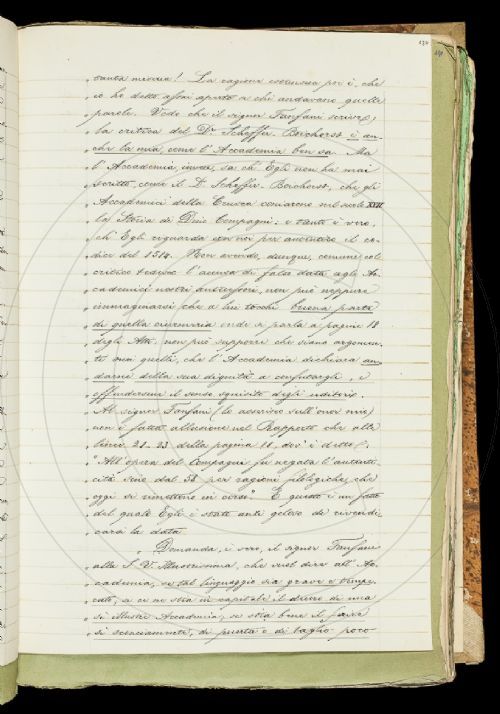 134
„ tanta miseria! La ragione estrinseca poi è, che
„ io ho detto assai aperto a chi andavano quelle
„ parole. Vede che il signor Fanfani scrive,
„ la critica del Dr Scheffer-Boichorst è an-
„ che la mia, come l'Accademia ben sa. Ma
„ l'Accademia, invece, sa che Egli non ha mai
„ scritto, come il D. Scheffer-Boichorst, che gli
„ Accademici della Crusca coniarono nel secolo XVII
„ la Storia di Dino Compagni: e tanto è vero,
„ ch'Egli riguarda con noi per autentico il co-
„ dice del 1514. Non avendo, dunque, comune col
„ critico tedesco l'accusa di falso data agli Ac-
„ cademici nostri antecessori, non può neppure
„ immaginarsi che a lui tocchi buona parte
„ di quella ciurmeria onde si parla a pagine 18
„ degli Atti, non può supporre che siano argomen-
„ ti suoi quelli, che l'Accademia dichiara an-
„ darne della sua dignità a confutargli, e
„ offendersene il senso squisito degli uditori.
„ Al signor Fanfani (lo asserisco sull'onor mio)
„ non è fatta allusione nel Rapporto che alle
„ linee 21-23 della pagina 11, dov'è detto:
„ "All'opera del Compagni fu negata l'autenti-
„ cità sino dal 58 per ragioni filologiche, che
„ oggi si rimettono in corso". E questo è un fatto
„ del quale Egli è stato anzi geloso di rivendi-
„ care la data.
„ Domanda, è vero, il signor Fanfani
„ alla S. V. Illustrissima, che vuol dire all'Ac-
„ cademia, se tal linguaggio sia grave e tempe-
„ rato, e se ne stia in capitale il decoro di una
„ sì illustre Accademia; se stia bene il ferire
„ sì sconciamente, di punta e di taglio poco